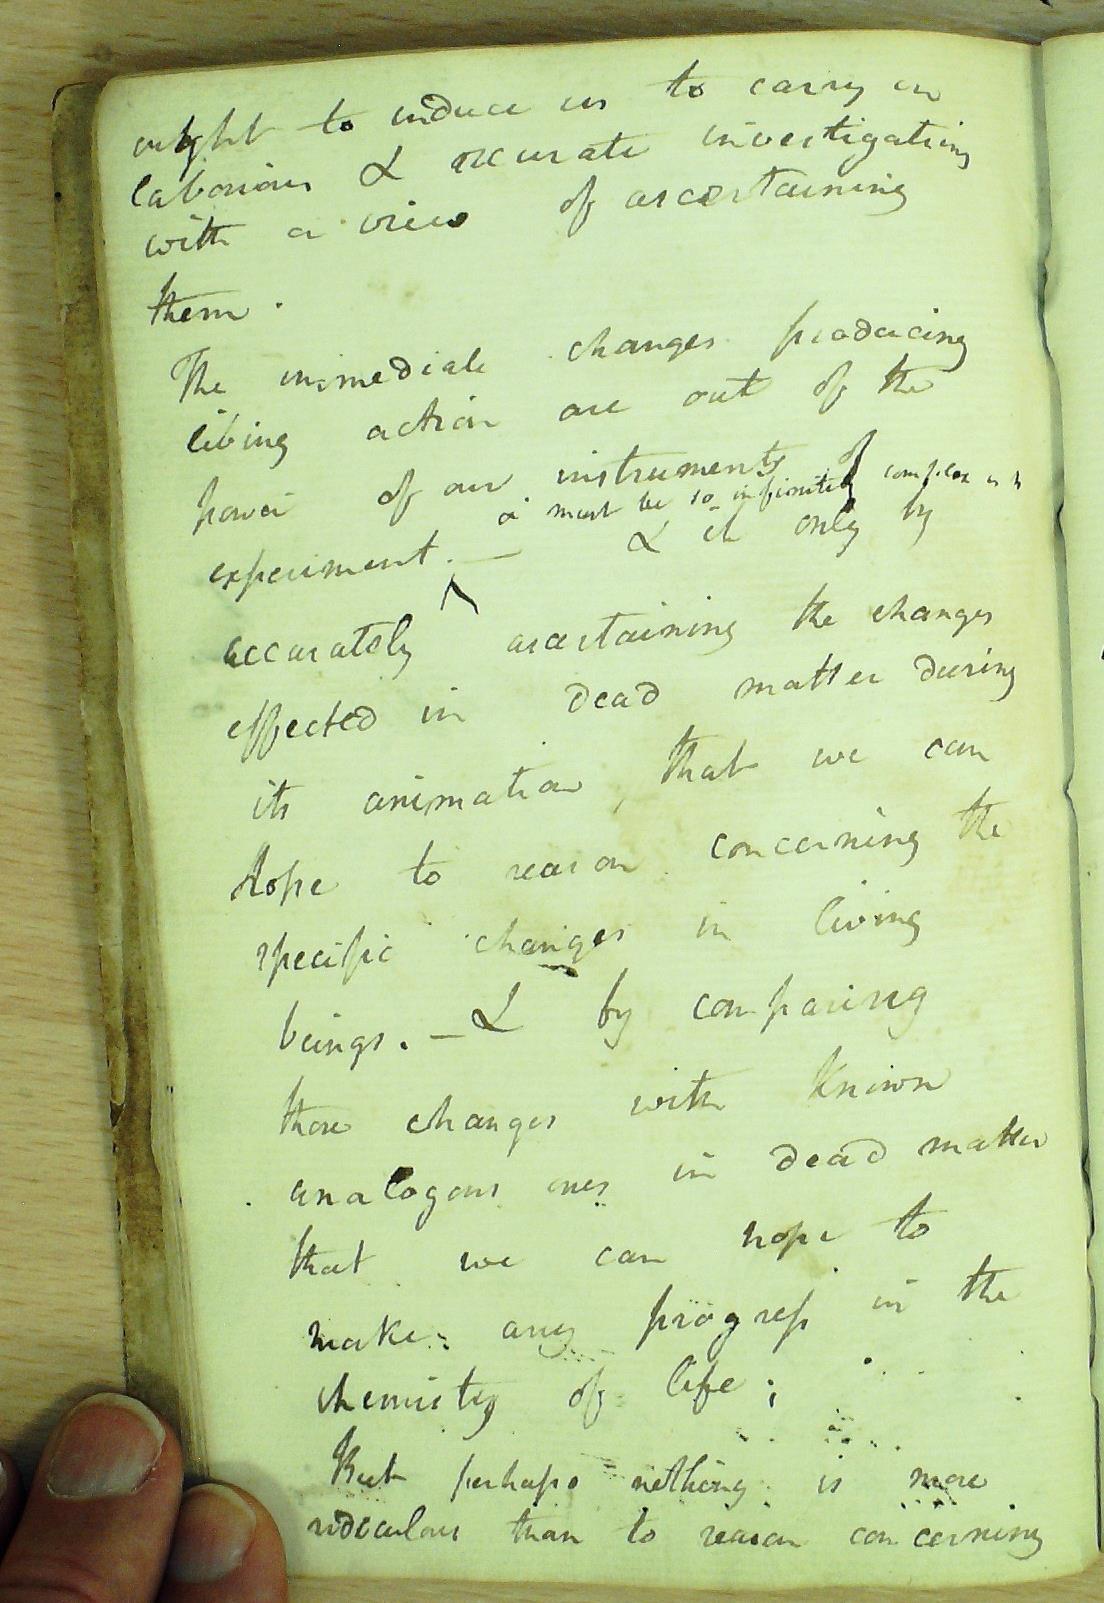 ought to induce us to carry on
laborious & accurate investigations
with a view of ascertaining
them.
The immediate changes producing
living action are out of the
power of our instruments of
a must be so infinitely complex as to
experiment. — & it only by
accurately ascertaining the changes
effected in dead matter during
its animation, that we can
hope to reason concerning the
specific changes in living
beings. — & by comparing
those changes with known
analogous ones in dead matter
that we can hope to
make any progress in the
chemistry of life;
But perhaps nothing is more
ridiculous than to reason concerning